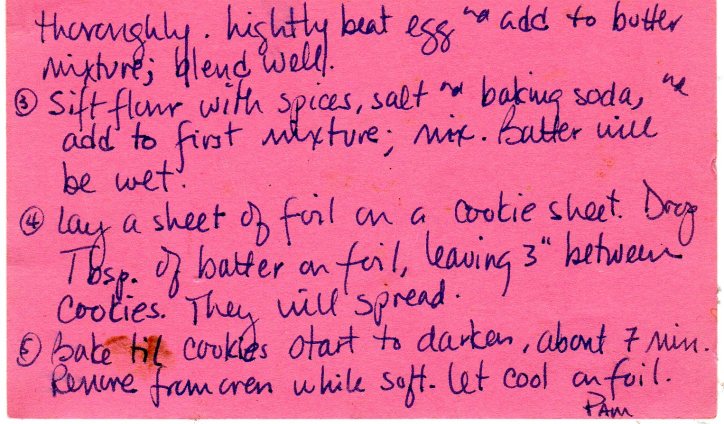 thoroughly. Lightly beat egg and add to butter
mixture; blend well.
③ Sift flour with spices, salt and baking soda, and
add to first mixture; mix. Batter will
be wet.
④ Lay a sheet of foil on a cookie sheet. Drop
Tbsp. of batter on foil, leaving 3" between
cookies. They will spread.
⑤ Bake til cookies start to darken, about 7 min.
Remove from oven while soft. Let cool on foil.
PAM